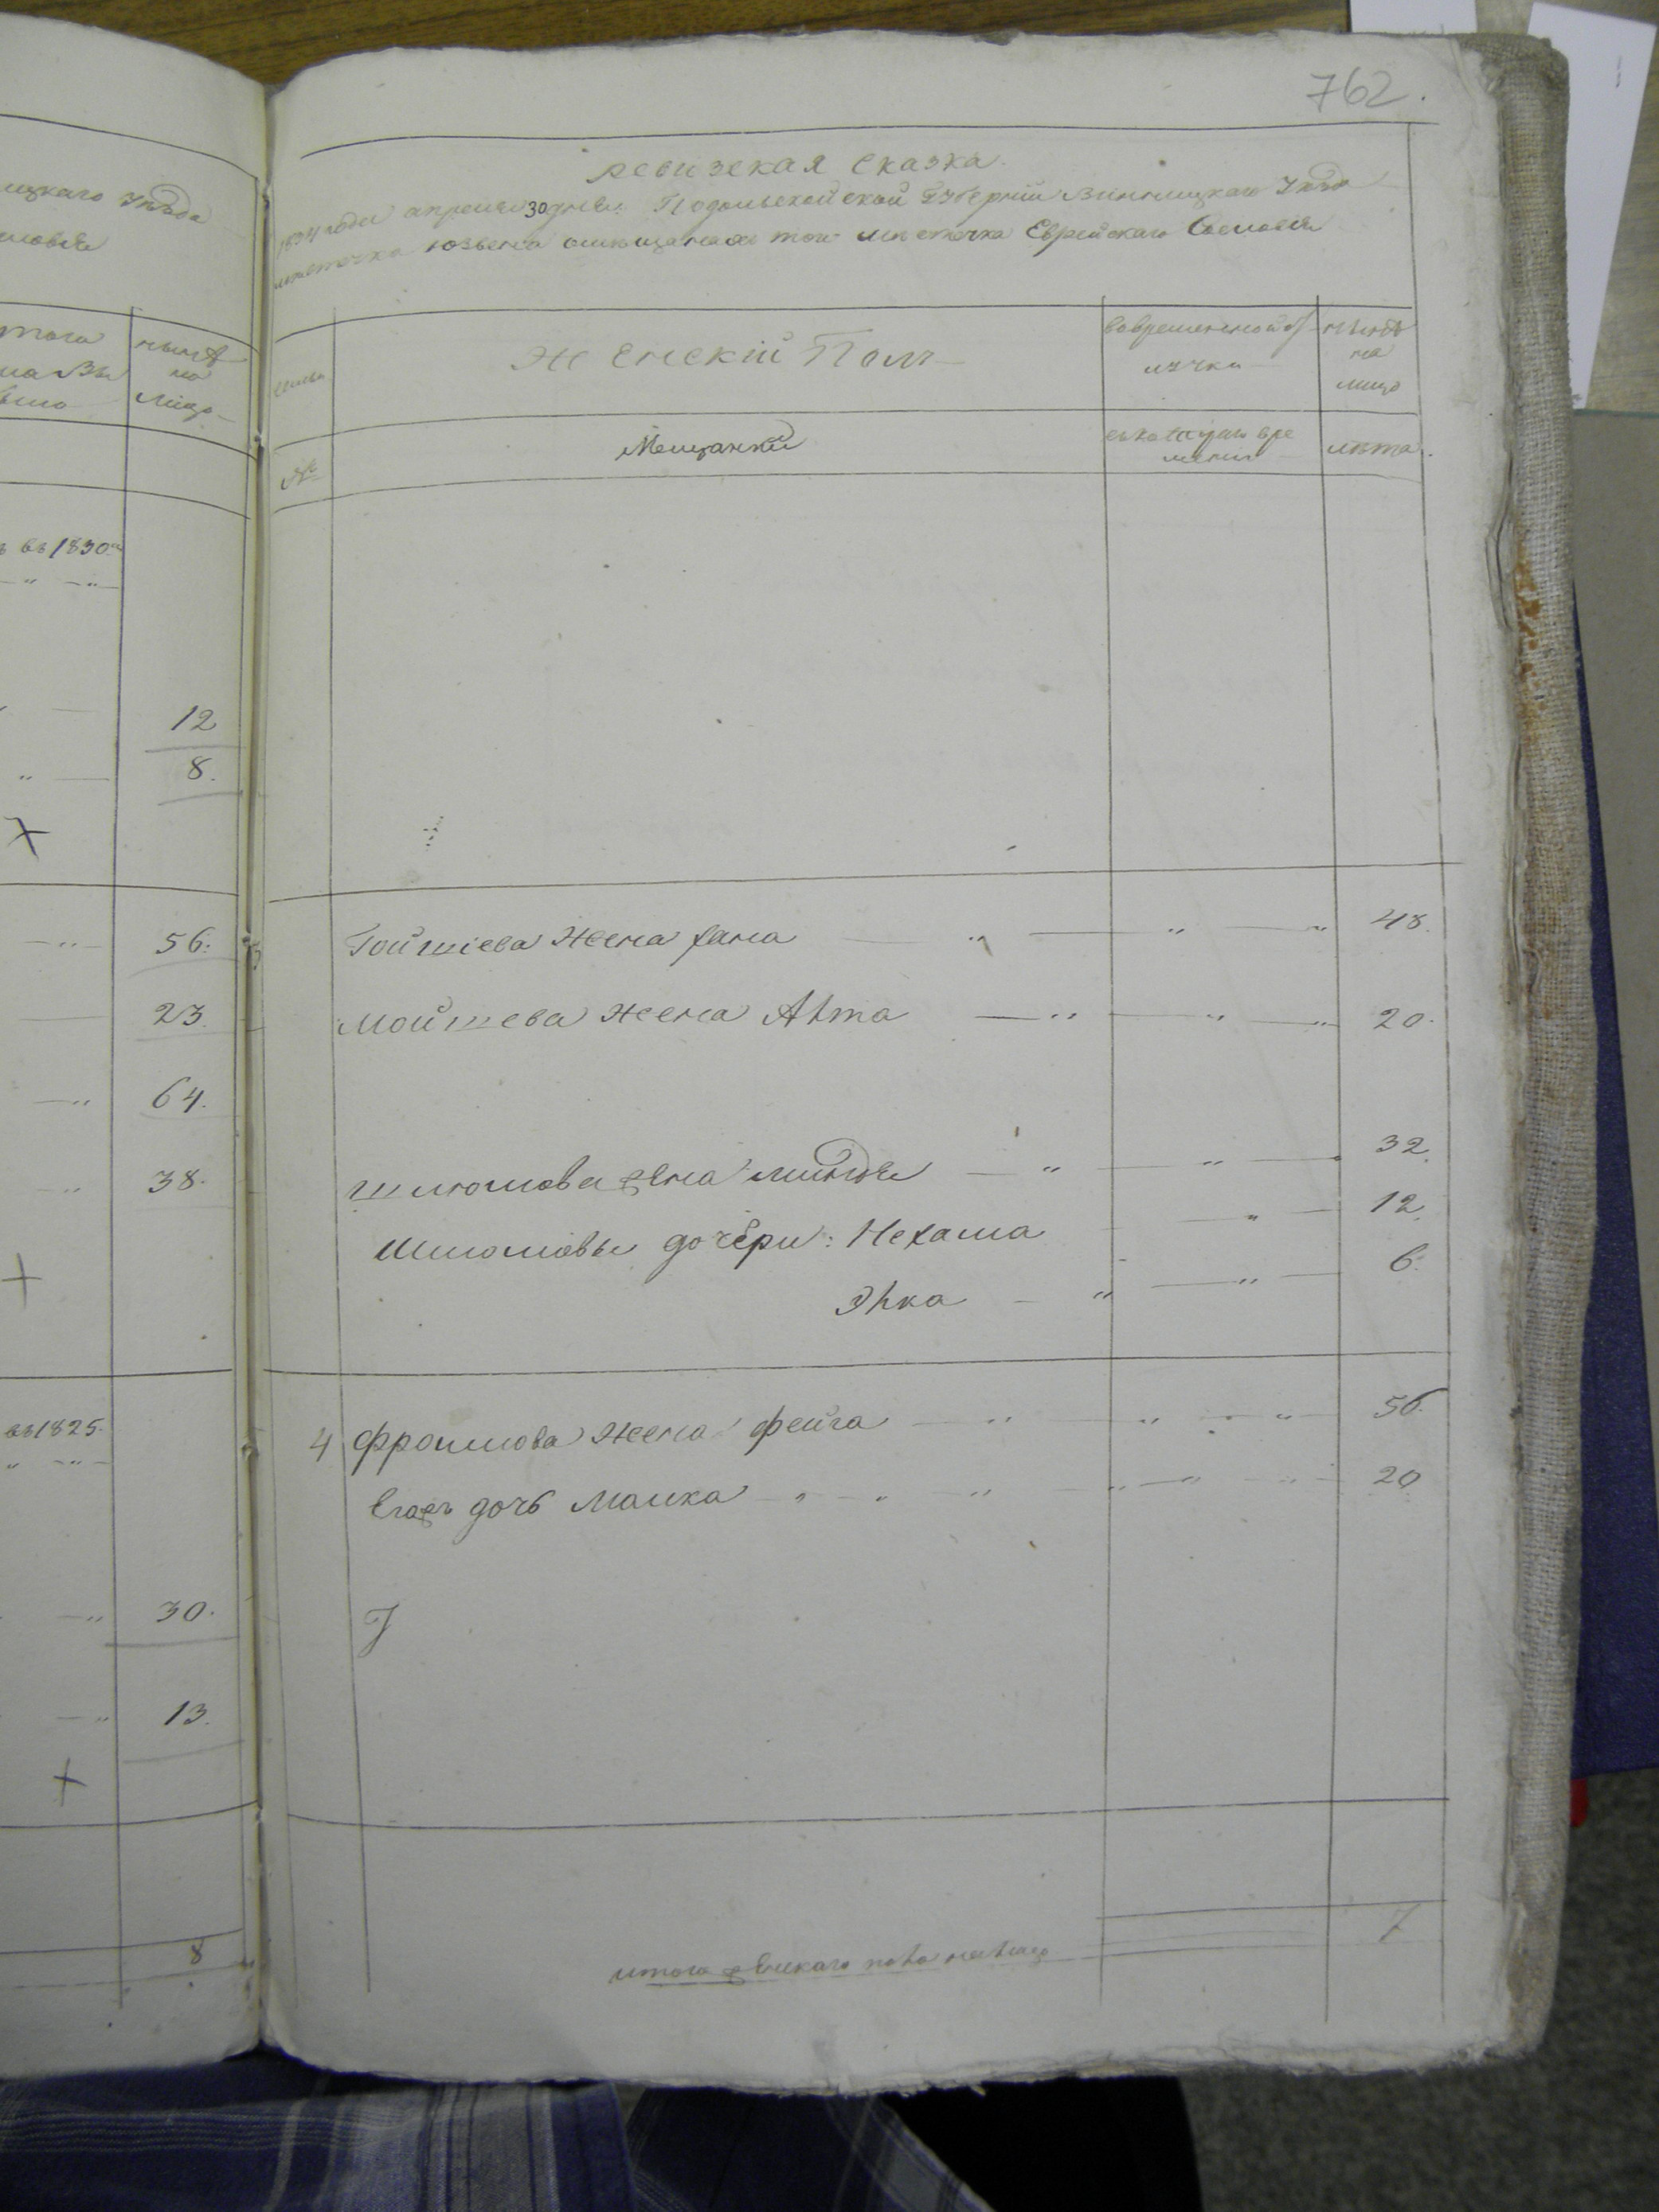 ицкаго Уѣзда
словія
нынѣ
на
лицо
въ 1830
12
8.
56.
23.
64.
38.
въ 1825.
30.
13.
8
762.
ревизская сказка.
1834 года апреля 30 дня. Подольской Губерніи Винницкаго Уѣзда
местечка юзвена омещанахъ того местечка Еврейскаго Сословія
Женскій Полъ
вовременной от
лучки
нынѣ
на
лицо
№
Мещанки
съкотораго вре
мени
лѣта.
Гойшіева жена хана 48.
Мойшева жена Аhта 20.
шлюмова жена миндля 32.
Шлюмовы дочери: Нехама 12.
Эhка 6.
4 Фроимова жена фейга 56.
Егожъ дочь Малка 20
итого женскаго пола налицо 7